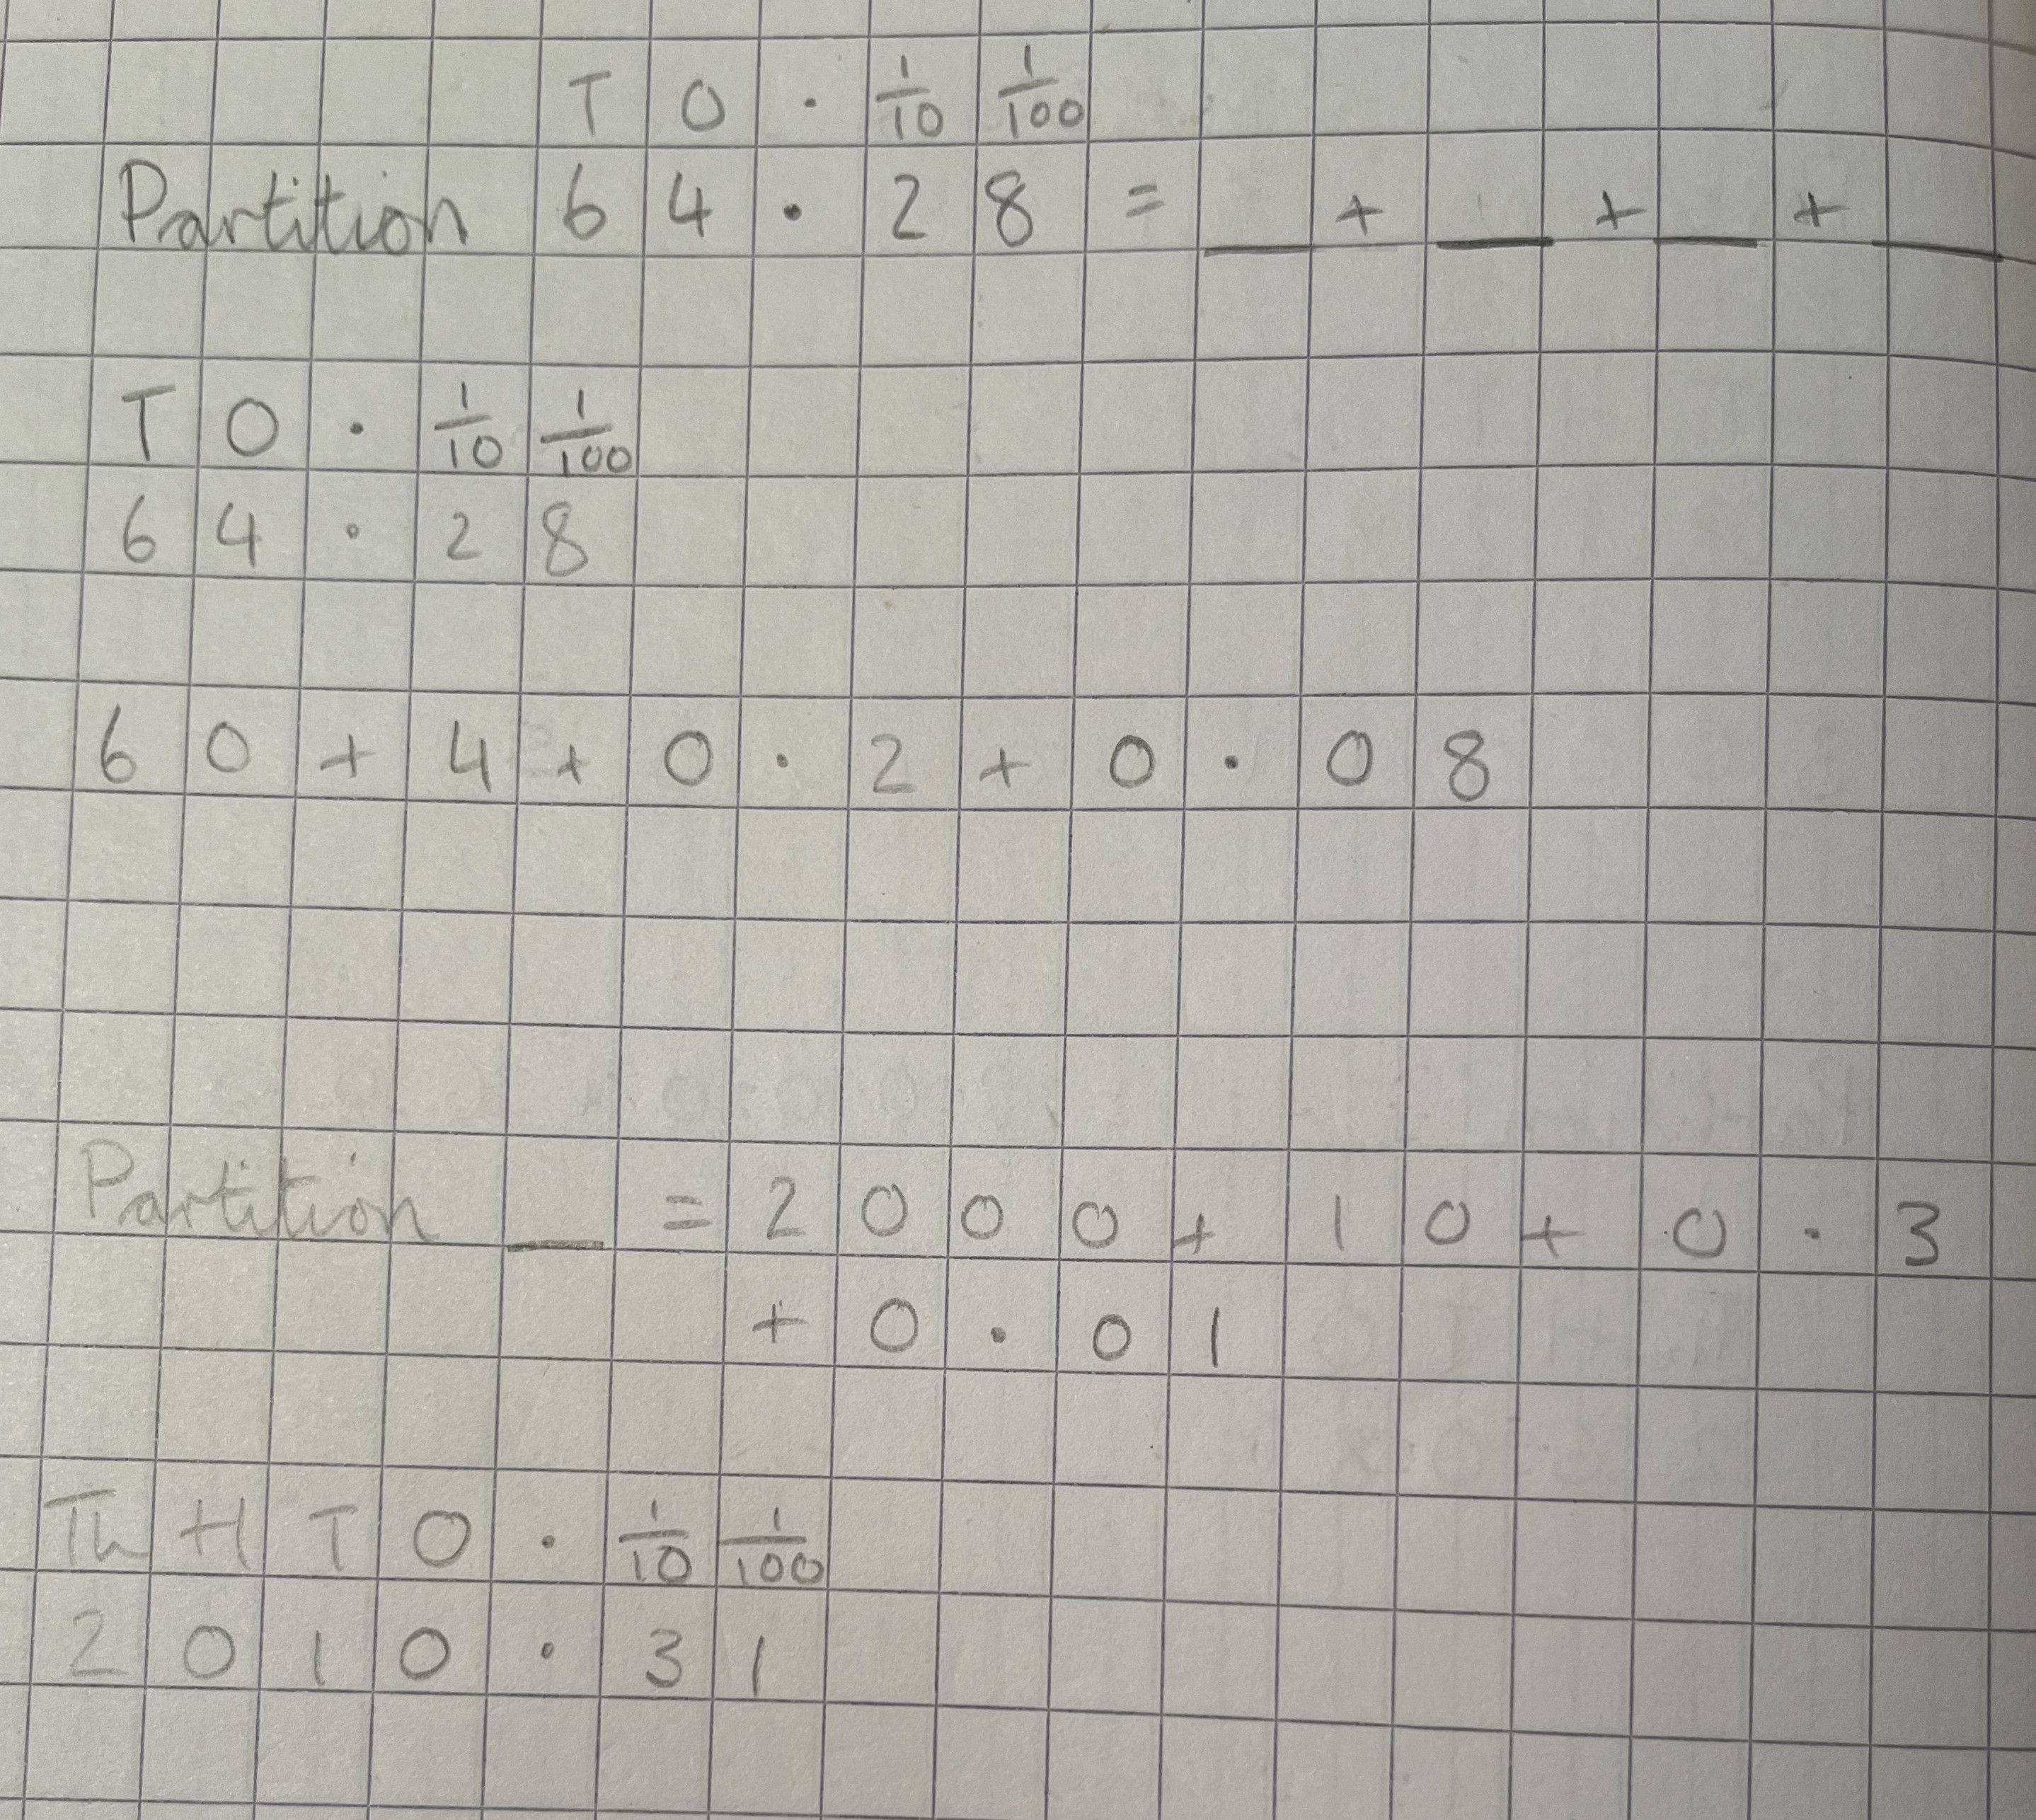 T O . 1/10 1/100
Partition 64.28 = __ + __ + __ + __
T O . 1/10 1/100
64.28
60 + 4 + 0.2 + 0.08
Partition __ = 2000 + 10 + 0.3
+ 0.01
Th H T O . 1/10 1/100
2010.31